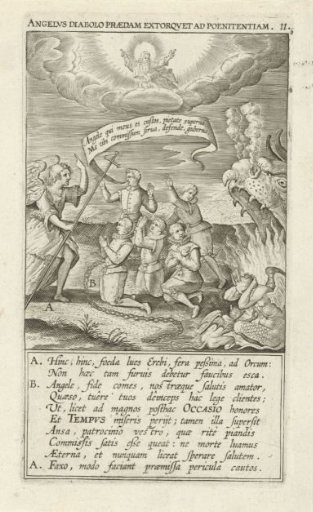 ANGELVS DIABOLO PRÆDAM EXTORQVET AD POENITENTIAM. 11.
Angele qui meus es custos, pietate superna
Me tibi commissum serua, defende, guberna
A
B
A. Hinc, hinc, foeda lues Erebi, fera peſsima, ad Orcum:
Non hæc tam furuis debetur faucibus esca.
B. Angele, fide comes, nostræque salutis amator,
Quæso, tuere: tuos deinceps hac lege clientes;
Ut, licet ad magnos posthac OCCASIO honores
Et TEMPVS miseris perijt; tamen illa superſit
Ansa, patrocinio vestro, quæ ritè piandis
Commiſsis satis eſse queat: ne morte luamus
Æterna, et nunquam liceat sperare salutem.
A. Faxo, modo faciant præmiſsa pericula cautos.